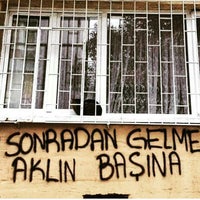 SONRADAN GELME
AKLIN BAŞINA